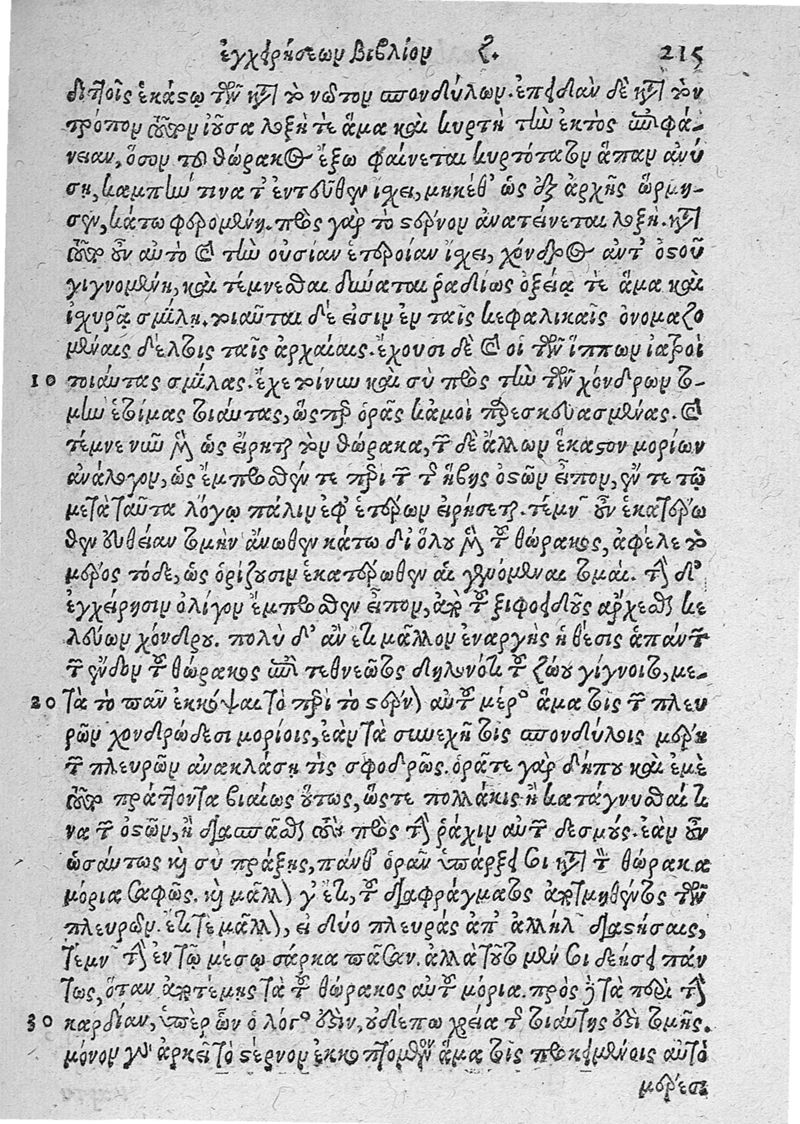 ἐγχειρήσεων βιβλίον ζ. 215
διττοῖς ἑκάστῳ τῶν κατὰ τὸ νῶτον σπονδύλων. ἐπειδὰν δὲ κατὰ τὸν
τρόπον τοῦτον ἰοῦσα λοξή τε ἅμα καὶ κυρτὴ τὴν ἐκτὸς ἐπιφά-
νειαν, ὅσον τοῦ θώρακος ἔξω φαίνεται κυρτότατον ἅπαν ἀνύ
σῃ, καμπήν τινα τ' ἐντεῦθεν ἴσχει, μηκέθ' ὡς ἐξ ἀρχῆς ὥρμη-
σεν, κάτω φερομένη. πρὸς γὰρ τὸ στέρνον ἀνατείνεται λοξή. κατὰ
τοῦτο οὖν αὐτὸ καὶ τὴν οὐσίαν ἑτεροίαν ἴσχει, χόνδρος ἀντ' ὀστοῦ
γιγνομένη, καὶ τέμνεσθαι δύναται ῥᾳδίως ὀξείᾳ τε ἅμα καὶ
ἰσχυρᾷ σμίλῃ. τοιαῦται δέ εἰσιν ἐν ταῖς κεφαλικαῖς ὀνομαζο
μέναις δέλτοις ταῖς ἀρχαίαις. ἔχουσι δὲ καὶ οἱ τῶν ἵππων ἰατροὶ
10 τοιαύτας σμίλας. ἔχε τοίνυν καὶ σὺ πρὸς τὴν τῶν χόνδρων το-
μὴν ἑτοίμας τοιαύτας, ὥσπερ ὁρᾷς κἀμοὶ παρεσκευασμένας. καὶ
τέμνε νῦν μὲν ὡς εἴρηται τὸν θώρακα, τῶν δὲ ἄλλων ἕκαστον μορίων
ἀνάλογον, ὡς ἔμπροσθέν τε περὶ τῶν τῆς ἥβης ὀστῶν εἶπον, ἔν τε τῷ
μετὰ ταῦτα λόγῳ πάλιν ἐφ' ἑτέρων εἰρήσεται. τέμνων οὖν ἑκατέρω
θεν εὐθεῖαν τομὴν ἄνωθεν κάτω δι' ὅλου μὲν τοῦ θώρακος, ἀφέλε τὸ
μέρος τόδε, ὡς ὁρίζουσιν ἑκατέρωθεν αἱ γενόμεναι τομαί. τὴν δ'
ἐγχείρησιν ὀλίγον ἔμπροσθεν εἶπον, ἀπὸ τοῦ ξιφοειδοῦς ἄρχεσθαι κε
λεύων χόνδρου. πολὺ δ' ἂν ἔτι μᾶλλον ἐναργὴς ἡ θέσις ἁπάντων
τῶν ἔνδον τοῦ θώρακος ἐπὶ τεθνεῶτος δηλονότι τοῦ ζῴου γίγνοιτο, με-
20 τὰ τὸ πᾶν ἐκκόψαι τὸ περὶ τὸ στέρνον αὐτοῦ μέρος ἅμα τοῖς τῶν πλευ
ρῶν χονδρώδεσι μορίοις, ἐὰν τὰ συνεχῆ τοῖς σπονδύλοις μέρη
τῶν πλευρῶν ἀνακλάσῃ τις σφοδρῶς. ὁρᾶτε γὰρ δήπου καὶ ἐμὲ
τοῦτο πράττοντα βιαίως οὕτως, ὥστε πολλάκις ἢ κατάγνυσθαί τι
να τῶν ὀστῶν, ἢ διασπᾶσθαι τοὺς πρὸς τὴν ῥάχιν αὐτῶν δεσμούς. ἐὰν οὖν
ὡσαύτως καὶ σὺ πράξῃς, πάνθ' ὁρᾶν ὑπάρξει σοι κατὰ τὸν θώρακα
μόρια σαφῶς. καὶ μᾶλλόν γ' ἔτι, τοῦ διαφράγματος ἀποτμηθέντος τῶν
πλευρῶν. ἔτι τε μᾶλλον, εἰ δύο πλευρὰς ἀπ' ἀλλήλων διαστήσαις,
τεμὼν τὴν ἐν τῷ μέσῳ σάρκα πᾶσαν. ἀλλὰ τοῦτο μέν σοι δεήσει πάν
τως, ὅταν ἀποτέμῃς τὰ τοῦ θώρακος αὐτοῦ μόρια. πρὸς δὲ τὰ περὶ τὴν
30 καρδίαν, ὑπὲρ ὧν ὁ λόγος ἐστὶν, οὐδέπω χρεία τῆς τοιαύτης ἐστὶ τομῆς.
μόνον γὰρ ἀρκεῖ τὸ στέρνον ἐκκοπτόμενον ἅμα τοῖς προκειμένοις αὐτῷ
μέρεσι